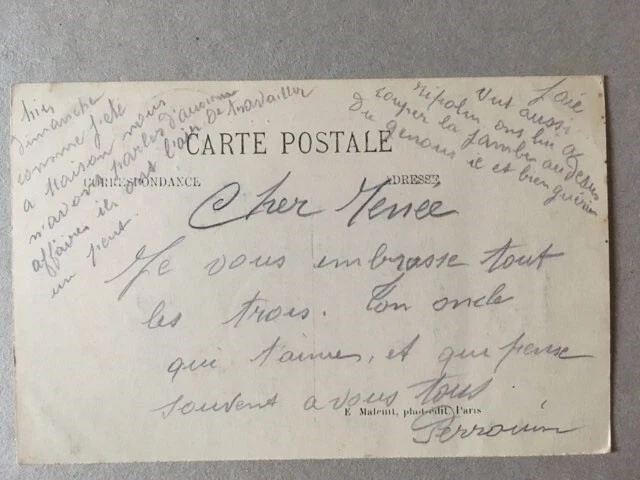 hier
dimanche
comme j'ete
a maison nous
n'avons parlés d'aucune
affaires ils ont l'air De travailler
un peut.
Joée
Vut aussi
ripolin ons lui a
couper la jambe au desus
du genous il et bien guérie
CARTE POSTALE
CORRESPONDANCE
ADRESSE
Cher Renee
Je vous embrasse tout
les trois. Ton oncle
qui t'aimes, et qui pense
souvent a vous tous.
E Maleuit, phot-édit, Paris
Perrouin